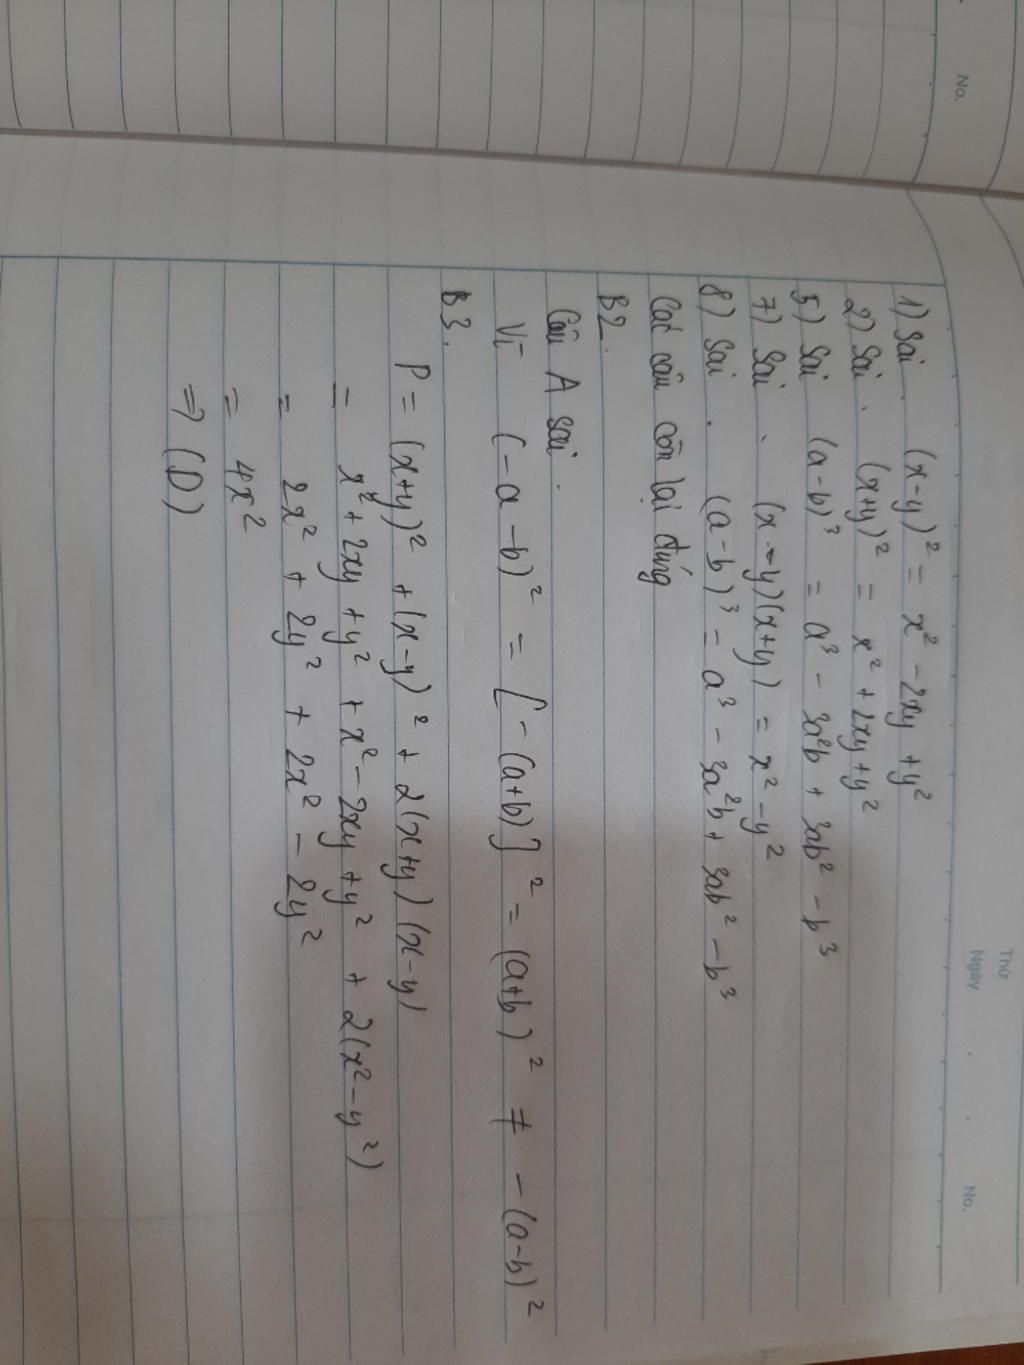 No.
Thứ
Ngày
No.
1) Sai (x-y)² = x² - 2xy + y²
2) Sai. (x+y)² = x² + 2xy + y²
5) Sai (a-b)³ = a³ - 3a²b + 3ab² - b³
7) Sai. (x-y)(x+y) = x² - y²
8) Sai. (a-b)³ = a³ - 3a²b + 3ab² - b³
Các câu còn lại đúng
B2.
Câu A sai.
Vì (-a-b)² = [-(a+b)]² = (a+b)² ≠ -(a-b)²
B3.
P = (x+y)² + (x-y)² + 2(x+y)(x-y)
= x² + 2xy + y² + x² - 2xy + y² + 2(x² - y²)
= 2x² + 2y² + 2x² - 2y²
= 4x²
⇒ (D)